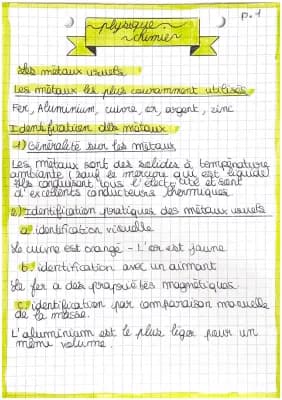 p.1
physique
chimie
Les métaux usuels
Les métaux les plus couramment utilisés
Fer, Aluminium, cuivre, or, argent, zinc
Identification des métaux
1) Généralité sur les métaux
Les métaux sont des solides à température
ambiante (sauf le mercure qui est liquide)
Ils conduisent tous l'électricité et sont
d'excellents conducteurs thermiques
2) Identification pratiques des métaux usuels
a. identification visuelle
Le cuivre est orangé - L'or est jaune
b. identification avec un aimant
Le fer a des propriétés magnétiques.
c. identification par comparaison manuelle
de la masse.
L'aluminium est le plus léger pour un
même volume.